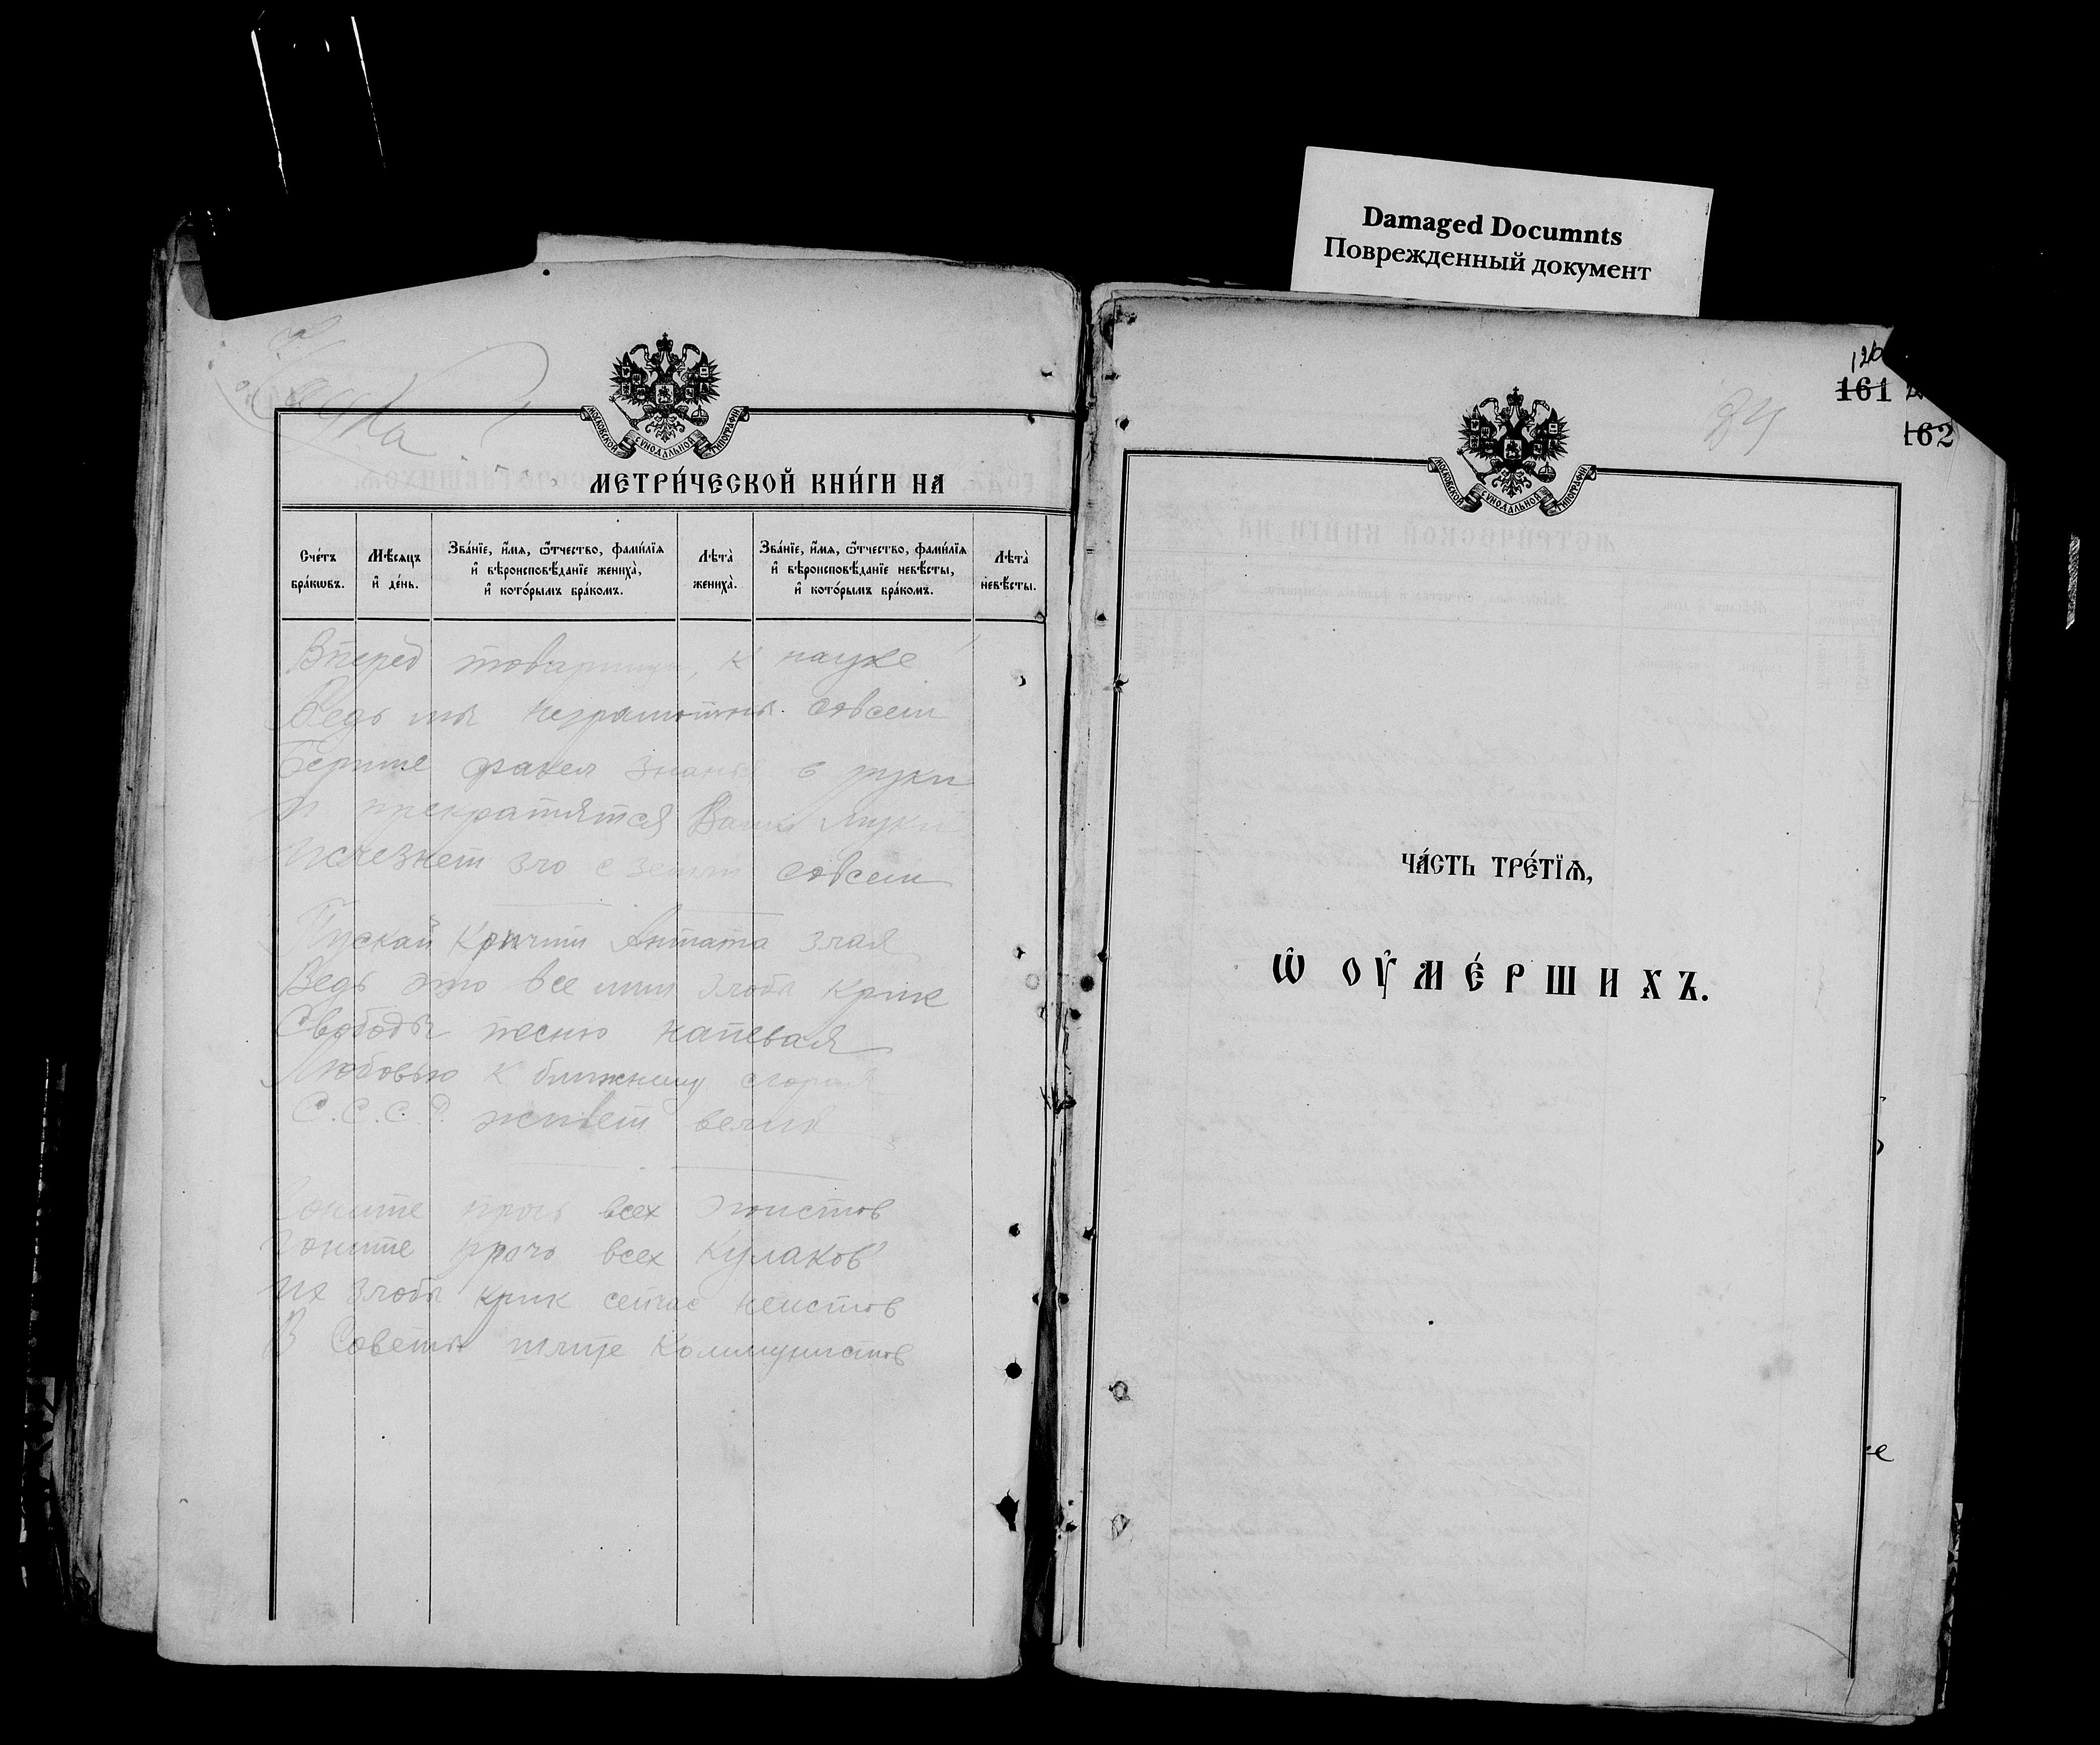 Damaged Documnts
Поврежденный документ
МОСКОВСКОЙ СѴНОДАЛЬНОЙ ТИПОГРАФІИ
МЕТРИ́ЧЕСКОЙ КНИ́ГИ НА
Сче́тъ бра́кѡвъ.
Мѣ́сяцъ и҆ де́нь.
Зва́нїе, и҆́мя, ѻ҆́тчество, фами́лїя и҆ вѣроисповѣ́данїе жениха̀, и҆ кото́рымъ бра́комъ.
Лѣта̀ жениха̀.
Зва́нїе, и҆́мя, ѻ҆́тчество, фами́лїя и҆ вѣроисповѣ́данїе невѣ́сты, и҆ кото́рымъ бра́комъ.
Лѣта̀ невѣ́сты.
Вперед товарищи, к науке
Ведь мы неграмотны совсем
Берите факел знанья в руки
И прекратятся Ваши муки
Исчезнет зло с земли совсем
Пускай кричит Антанта злая
Ведь это все лиш злобы крик
Свободы песню напевая
Любовью к ближнему сгорая
С.С.С.Р. живет
Гоните прочь всех эгоистов
Гоните прочь всех кулаков
Их злобы крик сейчас неистов
В Советы шлите Коммунистов
120
161
162
84
МОСКОВСКОЙ СѴНОДАЛЬНОЙ ТИПОГРАФІИ
ЧА́СТЬ ТРЕ́ТЇѦ,
Ѡ҆ ОУ҆МЕ́РШИХЪ.